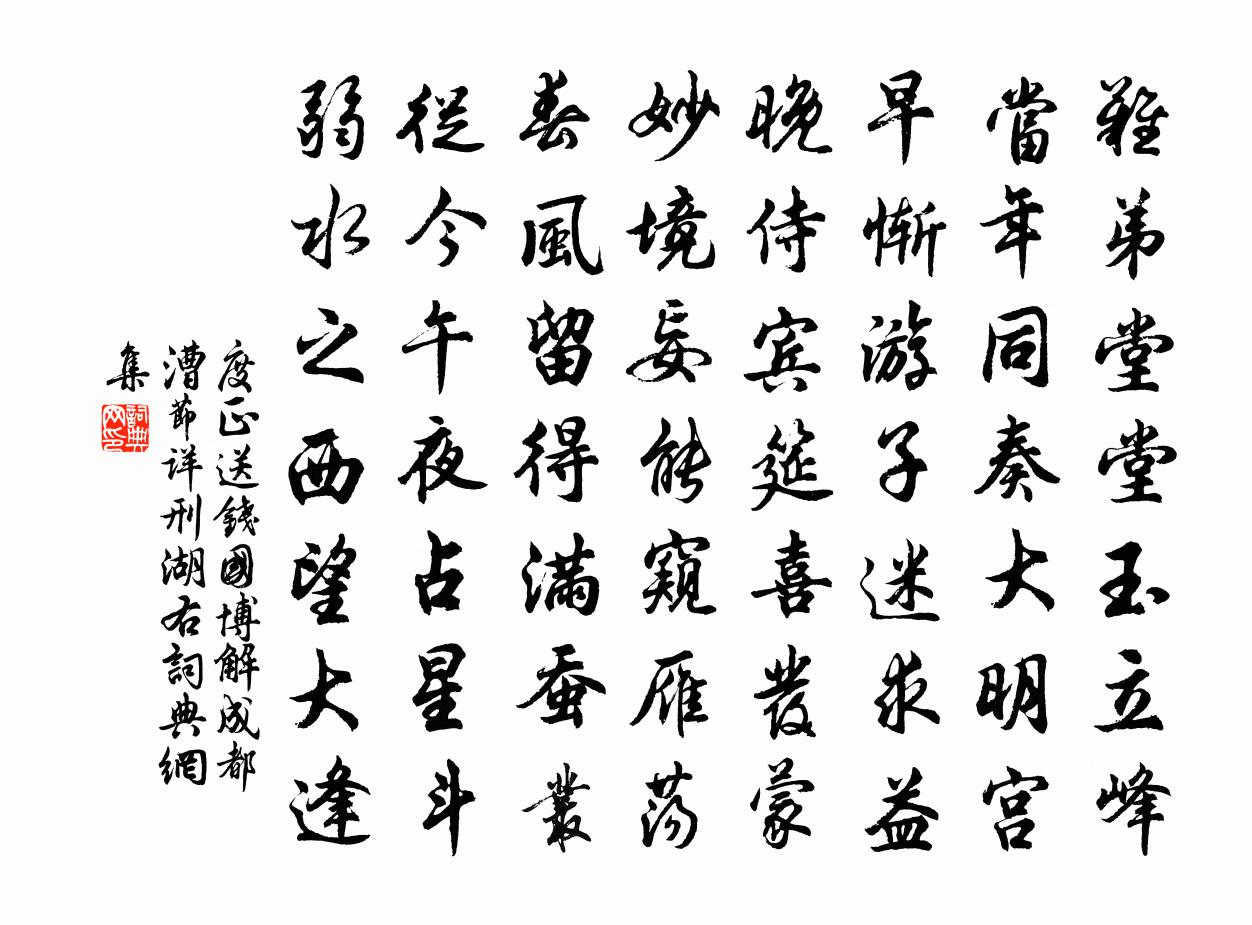 難弟堂堂玉立峰
當年同奏大明宫
早慚游子迷求益
晚侍宾筵喜發蒙
妙境妄能窺雁荡
春風留得满蚕叢
從今午夜占星斗
弱水之西望大逢
度正送錢國博解成都
漕節详刑湖右詞典網
集
詞典网印